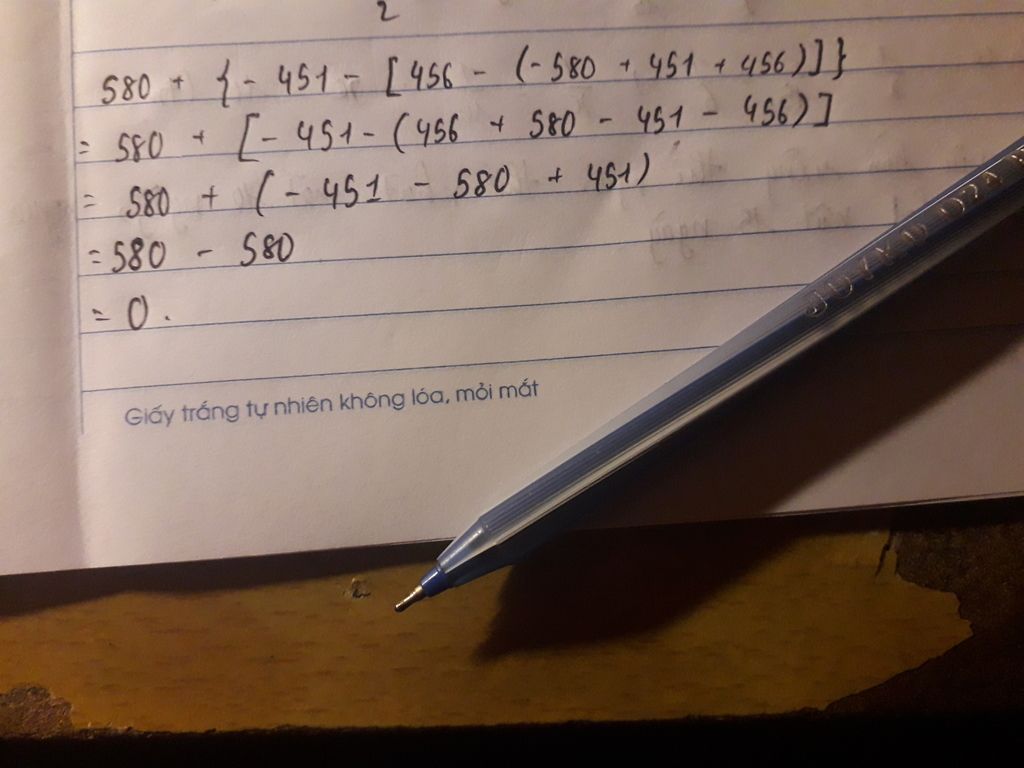 2
580 + { - 451 - [ 456 - ( - 580 + 451 + 456 ) ] }
= 580 + [ - 451 - ( 456 + 580 - 451 - 456 ) ]
= 580 + ( - 451 - 580 + 451 )
= 580 - 580
= 0 .
Giấy trắng tự nhiên không lóa, mỏi mắt